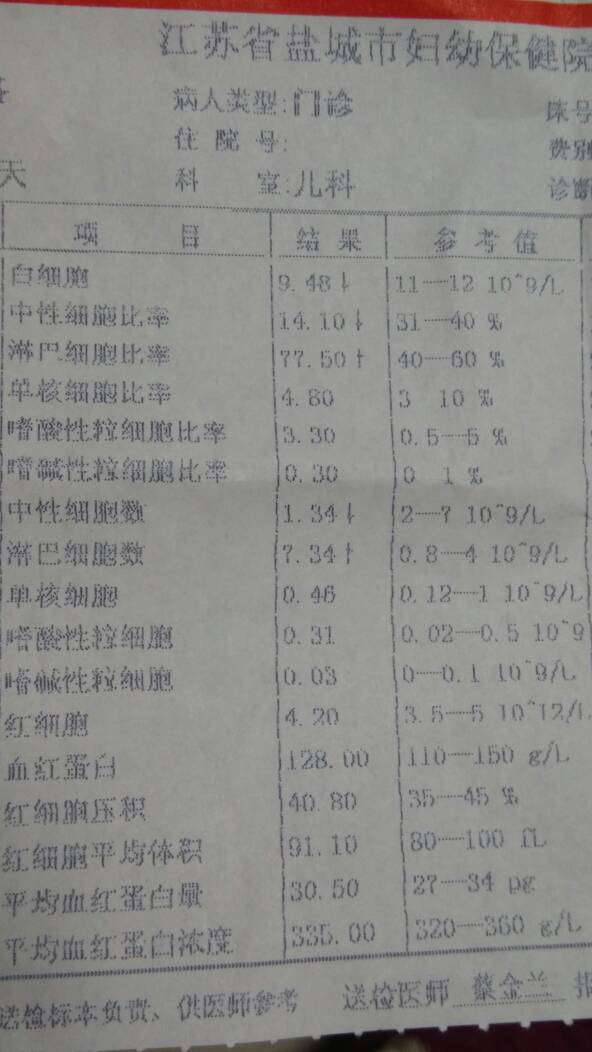 江苏省盐城市妇幼保健院
病人类型:门诊
床号
住 院 号:
费别
天
科 室:儿科
诊断
项 目 结 果 参 考 值
白细胞 9.48↓ 11——12 10^9/L
中性细胞比率 14.10↓ 31——40 %
淋巴细胞比率 77.50↑ 40——60 %
单核细胞比率 4.80 3 10 %
嗜酸性粒细胞比率 3.30 0.5——5 %
嗜碱性粒细胞比率 0.30 0 1 %
中性细胞数 1.34↓ 2——7 10^9/L
淋巴细胞数 7.34↑ 0.8——4 10^9/L
单核细胞 0.46 0.12——1 10^9/L
嗜酸性粒细胞 0.31 0.02——0.5 10^9
嗜碱性粒细胞 0.03 0——0.1 10^9/L
红细胞 4.20 3.5——5 10^12/L
血红蛋白 128.00 110——150 g/L
红细胞压积 40.80 35——45 %
红细胞平均体积 91.10 80——100 fL
平均血红蛋白量 30.50 27——34 pg
平均血红蛋白浓度 335.00 320——360 g/L
送检标本负责、供医师参考 送检医师 蔡金兰 报